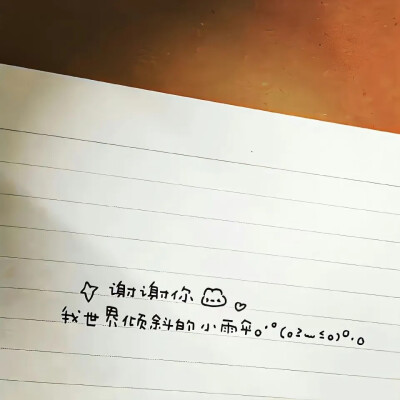 谢谢你
我世界倾斜的小雨伞o·°(o≥﹏≤o)°·o